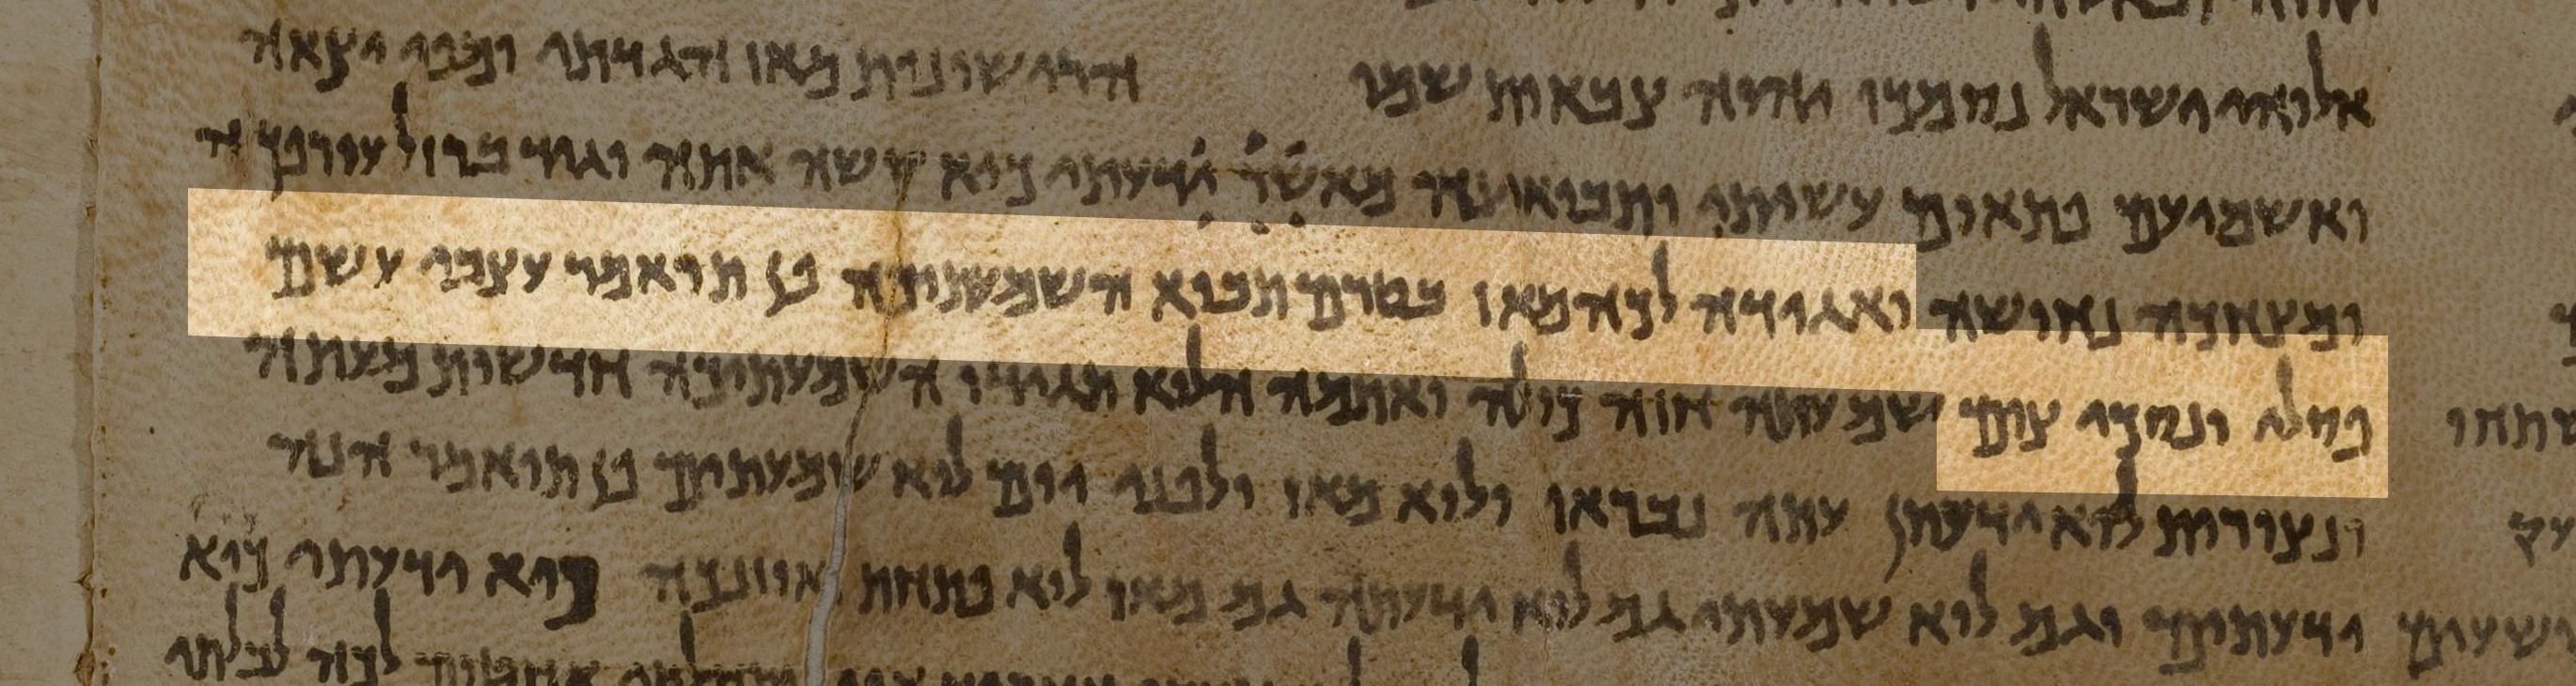 אלוהי ישראל נסמכו יהוה צבאות שמו הרישונות מאז הגדתי ומפי יצאה
ואשמיעם פתאום עשיתי ותבואינה מאשר ידעתי כיא קשה אתה וגיד ברזל עורפך
ומצחכה נחושה ואגידה לכה מאז בטרם תבוא השמעתיכה פן תואמר עצבי עשם
פסלי ונסכי צום שמעתה חזה כולה ואתמה הלוא תגידו השמעתיכה חדשות מעתה
ונצורות לוא ידעתן עתה נבראו ולוא מאז ולפני יום לוא שמעתים פן תואמר הנה
ידעתים וגם לוא שמעתה גם לוא ידעתה גם מאז לוא פתחת אוזנכה כיא ידעתי כיא
לכה לבלתי